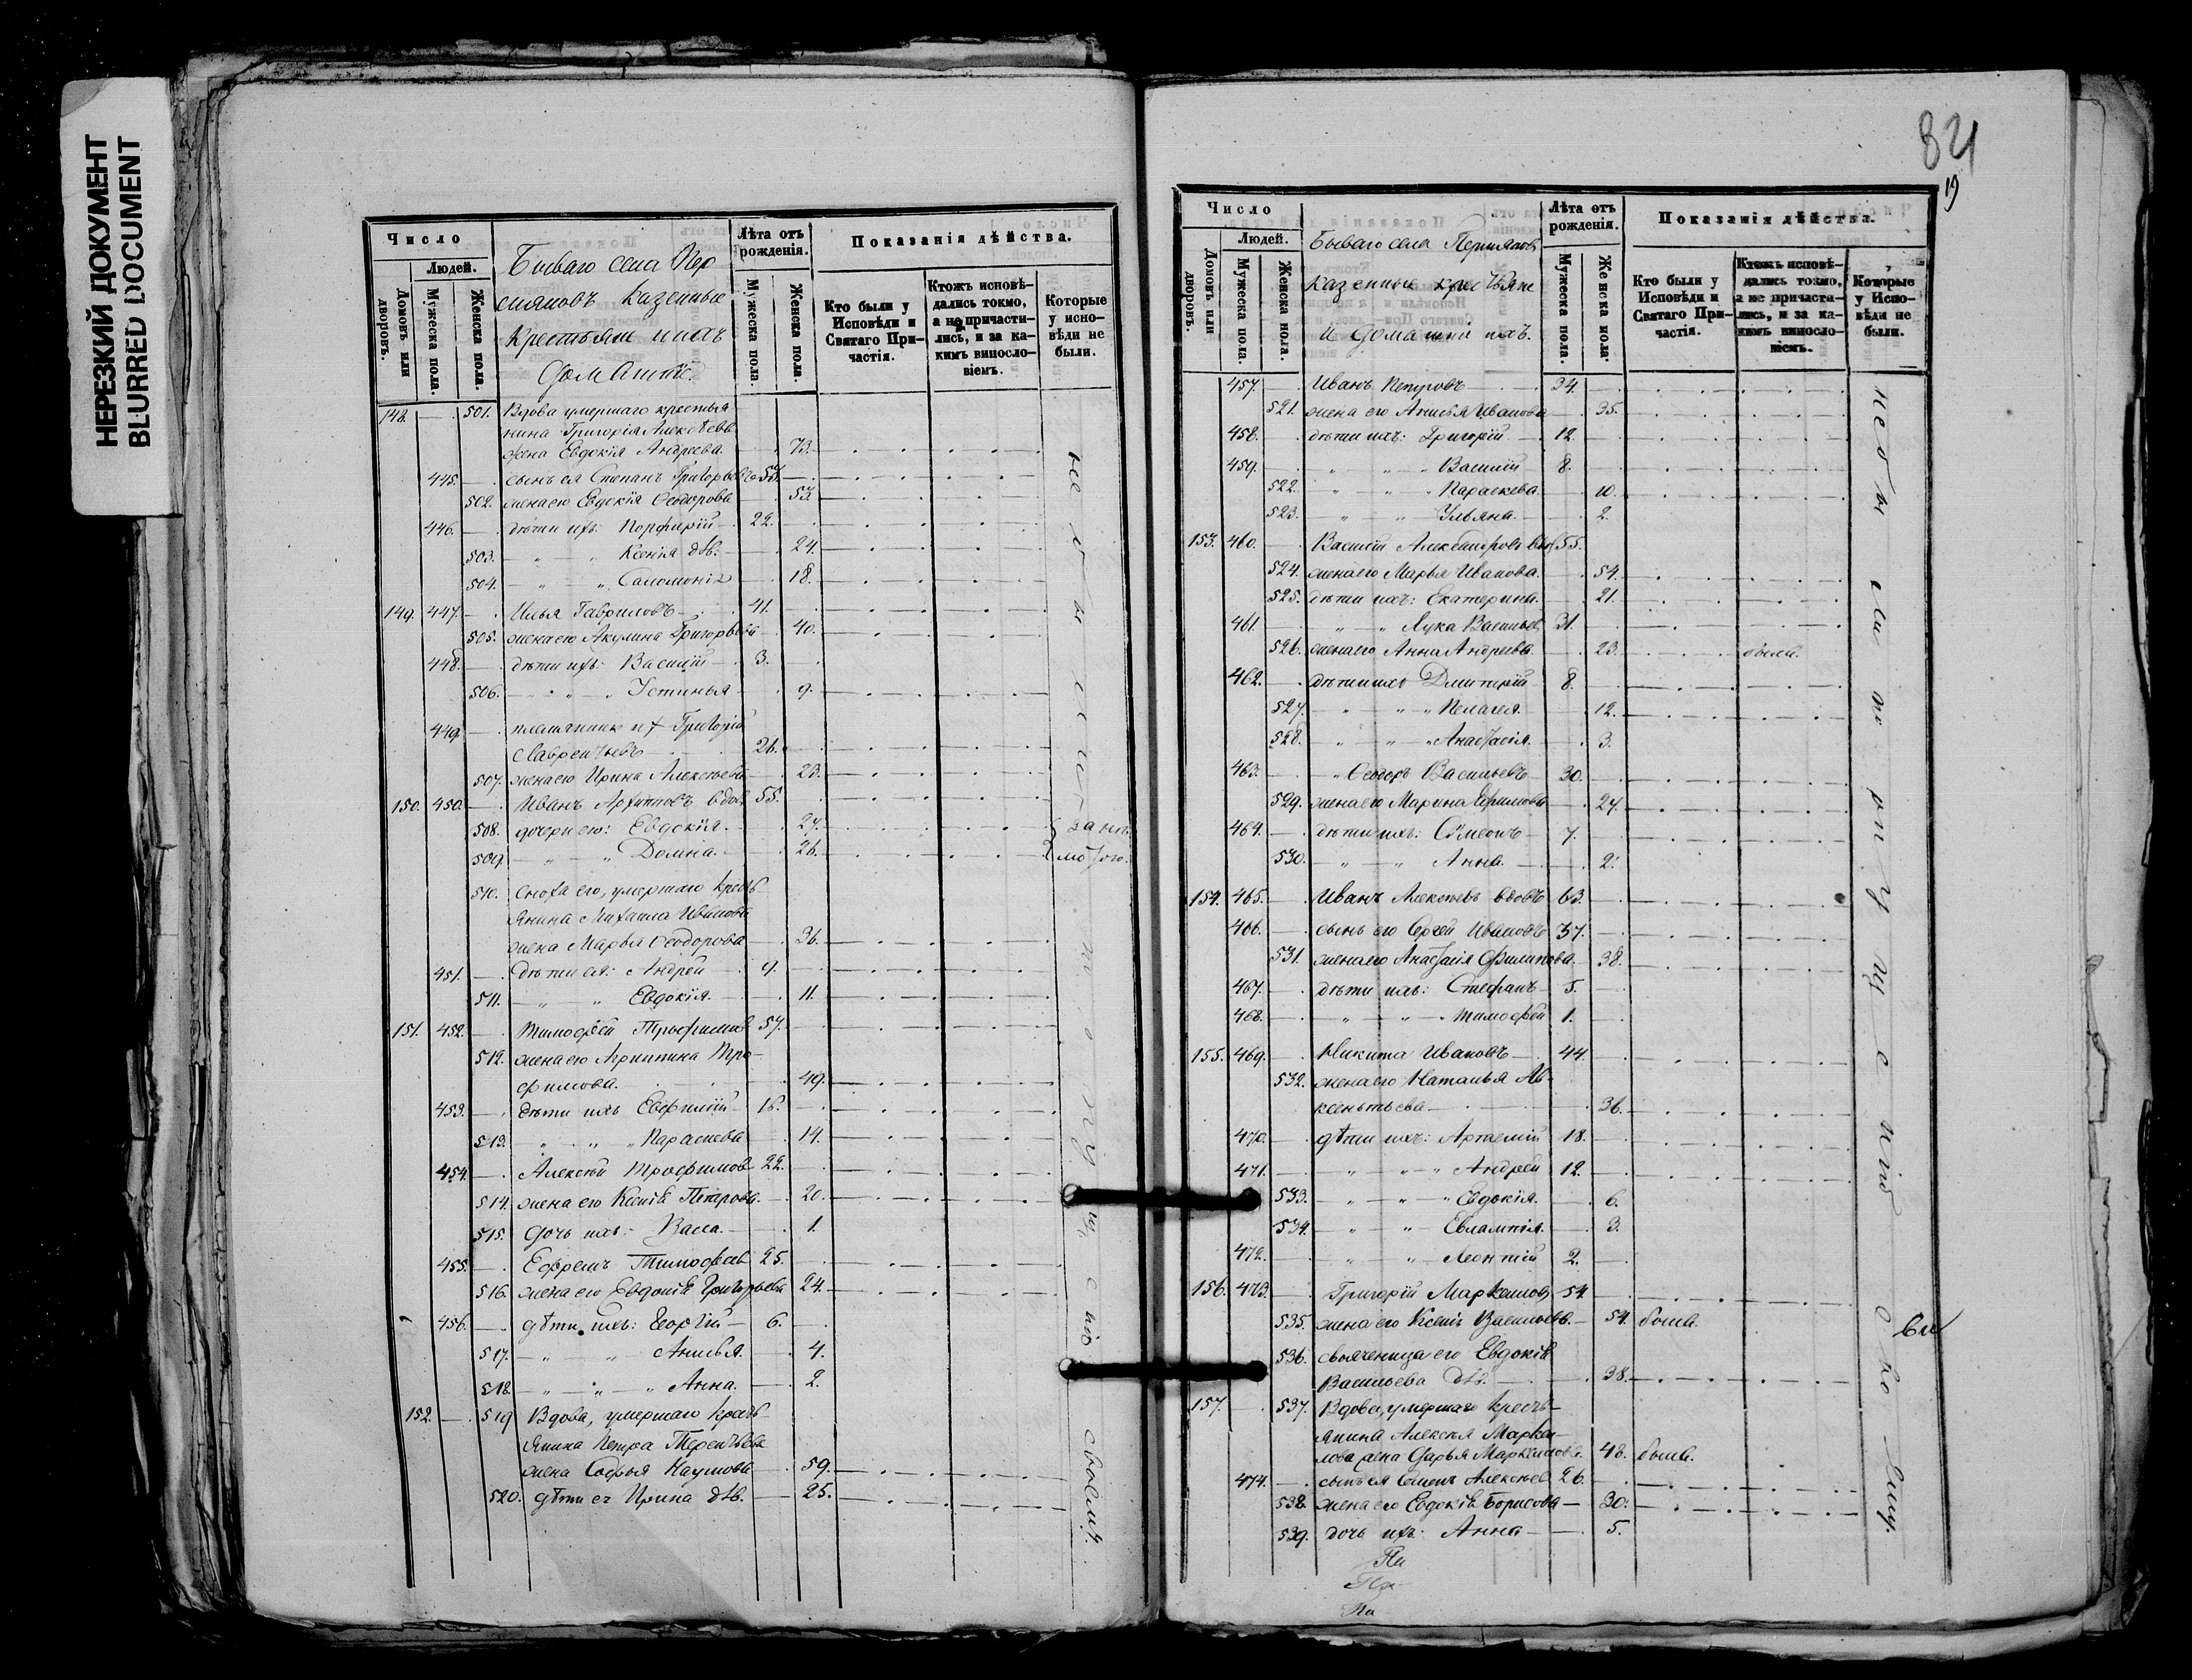 НЕРЕЗКИЙ ДОКУМЕНТ
BLURRED DOCUMENT
Число
Людей.
Домовъ или дворовъ.
Мужеска пола.
Женска пола.
Бываго села Пер
мяковъ казенные
Крестьяне и ихъ
домашніе
Лѣта отъ рожденія.
Мужеска пола.
Женска пола.
Показанія дѣйства.
Кто были у Исповѣди и Святаго Причастія.
Ктожъ исповѣдались токмо, а не причастились, и за какимъ винословіемъ.
Которые у исповѣди не были.
148. 501. Вдова умершаго крестья
нина Григорія Алексѣева
жена Евдокія Андреева 73.
445. сынъ ея Степанъ Григорьевъ 53.
502. жена его Евдокія Ѳеодорова 53.
446. дѣти ихъ: Порфирій 22.
503. " " Ксенія дѣв. 24.
504. " " Саломонія 18.
149. 447. Илья Гавриловъ 41.
505. жена его Акулина Григорьева 40.
448. дѣти ихъ: Василій 3.
506. " " Устинья 9.
449. племянникъ их Григорій
Лаврентьевъ 26.
507. жена его Ирина Алексѣева 23.
150. 450. Иванъ Архиповъ вдов. 55.
508. дочери его: Евдокія. 27.
509. " " Домна. 26.
510. сноха его, умершаго крест
янина Михаила Иванова
жена Марья Ѳеодорова 36.
451. дѣти ея: Андрей 9.
511. " " Евдокія. 11.
151. 452. Тимофей Трофимовъ 57.
512. жена его Агрипина Тро
фимова. 49.
453. дѣти ихъ Евфимій 16.
513. " " Параскева 14.
454. Алексѣй Трофимовъ 22.
514. жена его Ксенія Петрова. 20.
515. дочь ихъ: Васса. 1.
455. Ефремъ Тимофеевъ 25.
516. жена его Евдокія Григорьева 24.
456. дѣти ихъ: Георгій 6.
517. " " Анисья. 4.
518. " " " Анна. 2.
152. 519 Вдова, умершаго крест
янина Петра Терентьева
жена Софья Наумова 59.
520. дѣти ея Ирина дѣв. 25.
не были по опущенію своему.
84
19
Число
Людей.
Домовъ или дворовъ.
Мужеска пола.
Женска пола.
Бываго села Пермяковъ
казенные крестьяне
и домашніе ихъ.
Лѣта отъ рожденія.
Мужеска пола.
Женска пола.
Показанія дѣйства.
Кто были у Исповѣди и Святаго Причастія.
Ктожъ исповѣдались токмо, а не причастились, и за какимъ винословіемъ.
Которые у Исповѣди не были.
457. Иванъ Петровъ 34.
521. жена его Анисья Иванова 35.
458. дѣти ихъ: Григорій 12.
459. " " Василій 8.
522. " " " Параскева. 10.
523. " " Ульяна. 2.
153. 460. Василій Александровъ вдов 55.
524. жена его Марья Иванова. 54.
525. дѣти ихъ: Екатерина. 21.
461. " " Лука Васильев 31.
526. жена его Анна Андреева 23. была.
462. дѣти ихъ Дмитрій 8.
527. " " " Пелагея. 12.
528. " " " Анастасія. 3.
463. " Ѳеодоръ Васильевъ 30.
529. жена его Марина Ефимова 27.
464. дѣти ихъ: Симеонъ 7.
530. " " Анна. 2.
154. 465. Иванъ Алексѣевъ вдовъ 63.
466. сынъ его Сергей Ивановъ 37.
531. жена его Анастасія Филипова. 38.
467. дѣти ихъ: Стефанъ 5.
468. " " " Тимофей 1.
155. 469. Никита Ивановъ 44.
532. жена его Наталья Ав
ксентьева 36.
470. дѣти ихъ: Артемій 18.
471. " " " Андрей 12.
533. " " " Евдокія. 6.
534. " " Евлампія. 3.
472. " " Леонтій 2.
156. 473. Григорій Маркеловъ 54.
535. жена его Ксенія Васильева. 54. была.
536. свояченица его Евдокія
Васильева дѣв. 38.
157. 537. Вдова, умершаго крест
янина Алексѣя Марке
лова жена Дарья Маркелова. 48. была.
474. сынъ ея Семенъ Алексѣев 26.
538. жена его Евдокія Борисова 30.
539. дочь их: Анна 5.
не были по опущенію